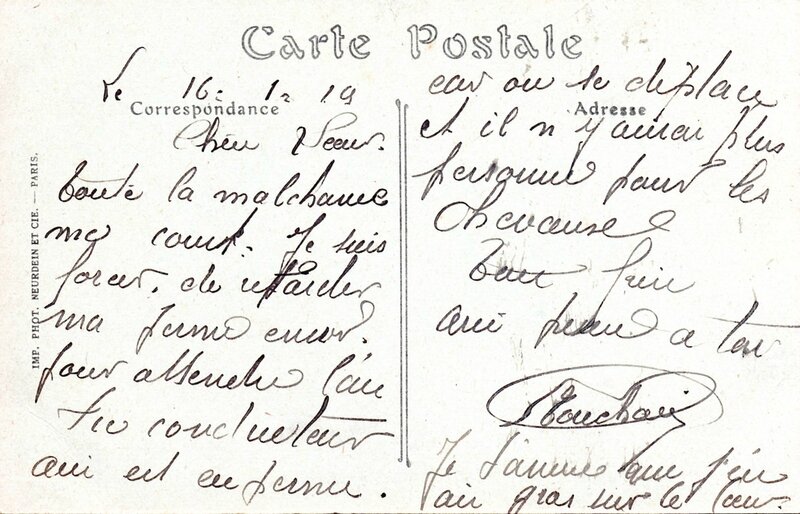 Carte Postale
Correspondance
Adresse
IMP. PHOT. NEURDEIN ET CIE. — PARIS.
Le 16 = 1 = 19
Cheu
touté la malchance
me court. Je suis
forcer, de retarder
ma perme encor.
pour attendre l'au
tre conducteur
qui est en perme.
car on se déplace
et il n'y aurai plus
personne pour les
chevause
Ton
qui pense a toi
Je t'assure que j'en
ai gros sur le cœur.